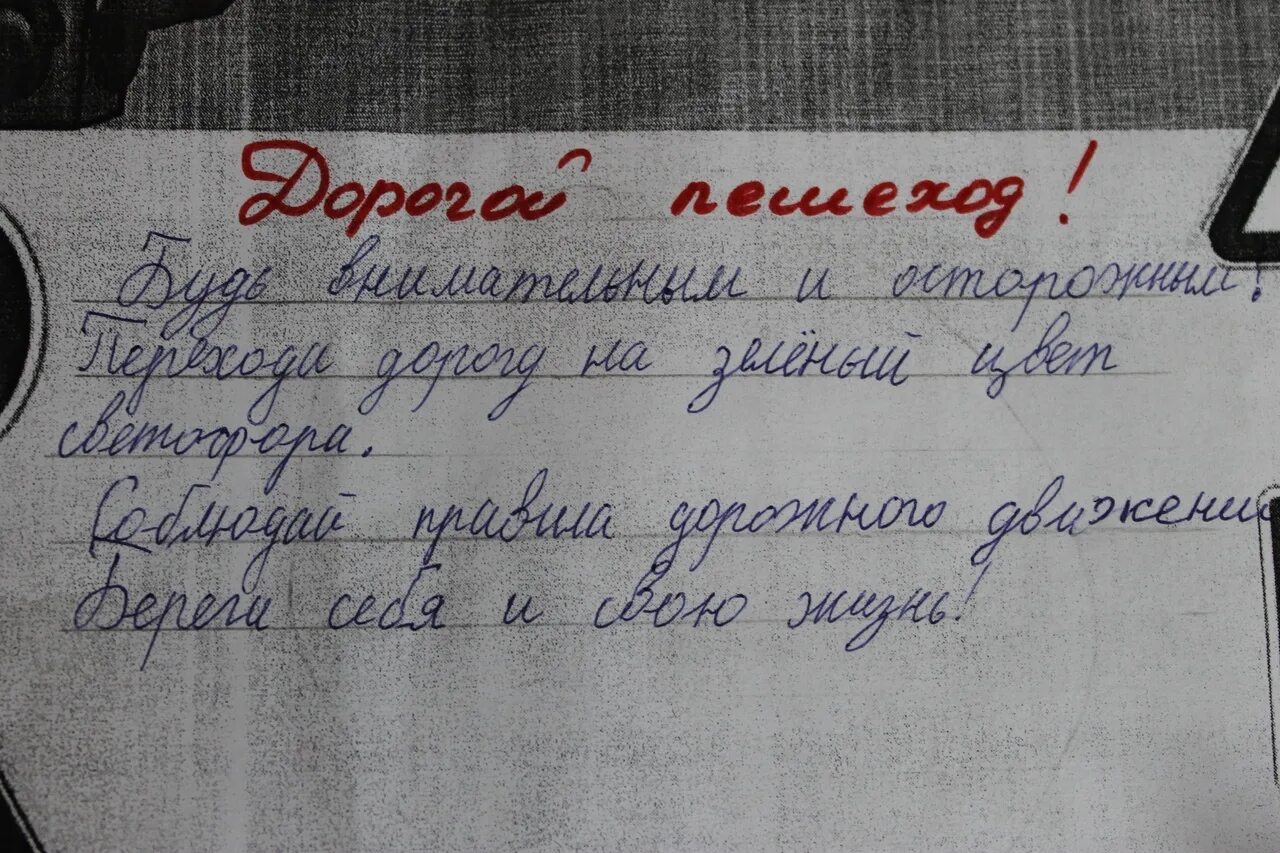 Дорогой пешеход!
Будь внимательным и осторожным!
Переходи дорогу на зелёный цвет
светофора.
Соблюдай правила дорожного движени
Береги себя и свою жизнь!